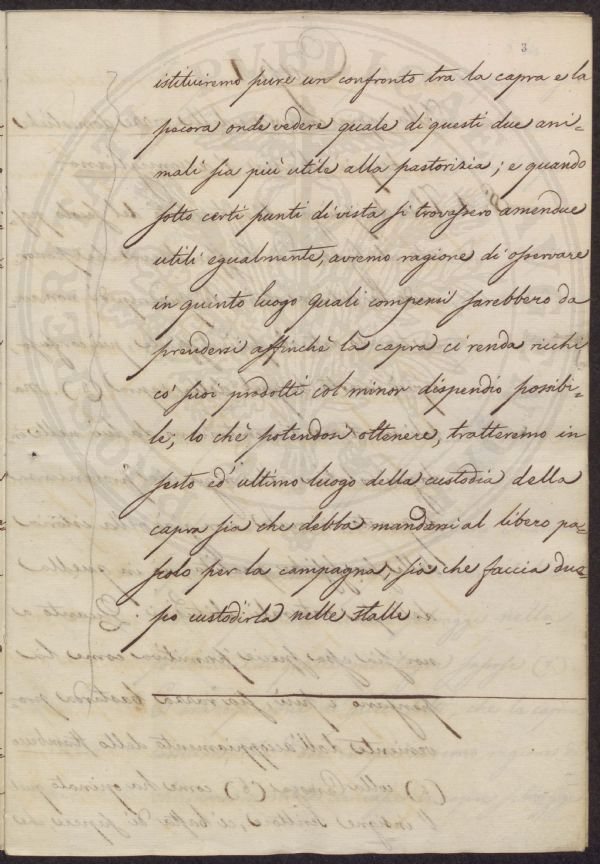 3
istituiremo pure un confronto tra la capra e la
pecora onde vedere quale di questi due ani-
mali sia più utile alla pastorizia; e quando
sotto certi punti di vista si trovassero amendue
utili egualmente, avremo ragione di osservare
in quinto luogo quali compensi sarebbero da
prendersi affinchè la capra ci renda ricchi
co' suoi prodotti col minor dispendio possibi-
le; lo chè potendosi ottenere, tratteremo in
sesto ed ultimo luogo della custodia della
capra sia che debba mandarsi al libero pa-
scolo per la campagna, sia che faccia duo-
po custodirla nelle stalle.